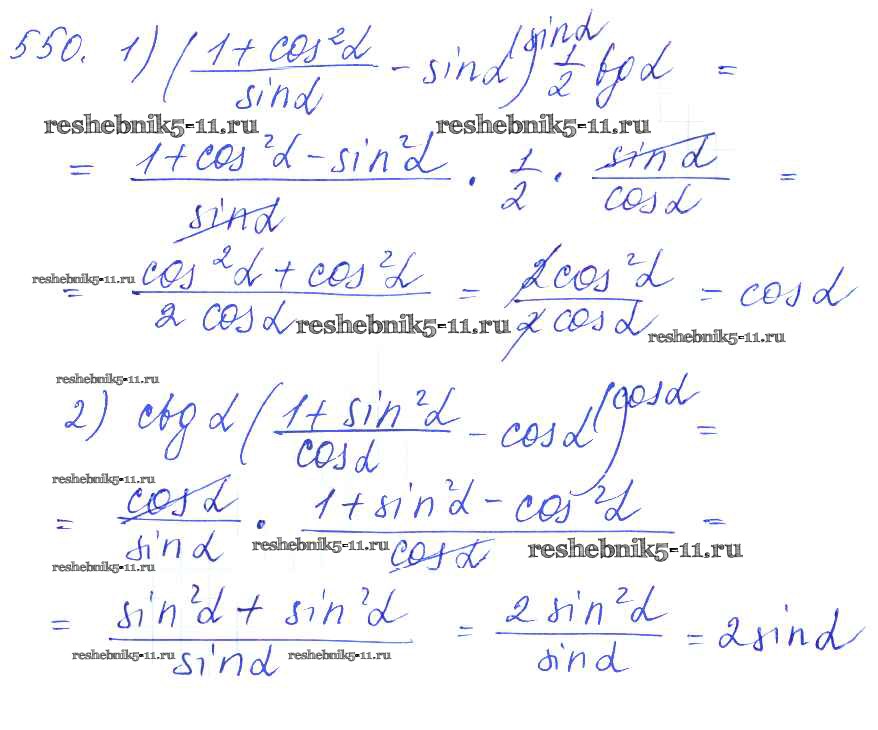 550. 1) ((1 + cos²α)/sinα − sinα^(sinα) ) 1/2 tgα =
reshebnik5-11.ru reshebnik5-11.ru
= (1 + cos²α − sin²α)/sinα · 1/2 · sinα/cosα =
reshebnik5-11.ru
= (cos²α + cos²α)/(2 cosα) = 2cos²α/(2cosα) = cosα
reshebnik5-11.ru reshebnik5-11.ru
reshebnik5-11.ru
2) ctgα ((1 + sin²α)/cosα − cosα^(cosα) ) =
reshebnik5-11.ru
= cosα/sinα · (1 + sin²α − cos²α)/cosα =
reshebnik5-11.ru reshebnik5-11.ru
reshebnik5-11.ru
= (sin²α + sin²α)/sinα = 2sin²α/sinα = 2sinα
reshebnik5-11.ru reshebnik5-11.ru